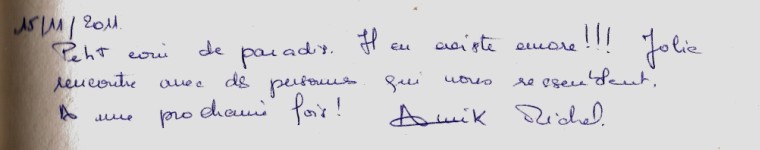 15/11/2011.
Petit coin de paradis. Il en existe encore!!! Jolie
rencontre avec des personnes qui nous ressemblent.
A une prochaine fois! Annik Michel.